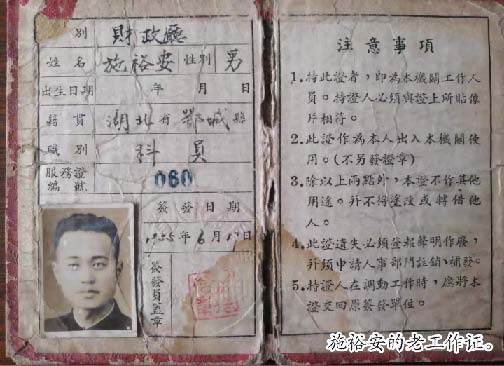 別 財政廳
姓名 施裕安 性別 男
出生日期 年 月 日
籍貫 湖北省鄂城縣
職別 科員
服務證編號 060
簽發日期
1955年6月1日
簽發員蓋章
注意事項
1. 持此證者，即為本機關工作人
員。持證人必須與證上所貼像
片相符。
2. 此證作為本人出入本機關使
用。（不另發證章）
3. 除以上兩點外，本證不作其他
用途。并不得塗改或轉借他
人。
4. 此證遺失必須登報聲明作廢，
并須申請人事部門註銷，補發。
5. 持證人在調動工作時，應將本
證交回原簽發單位。
施裕安的老工作证。